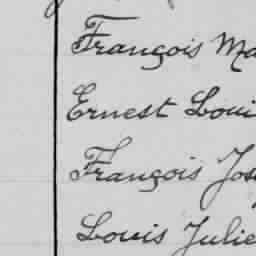 François Ma
Ernest Loui
François Jos
Louis Julie